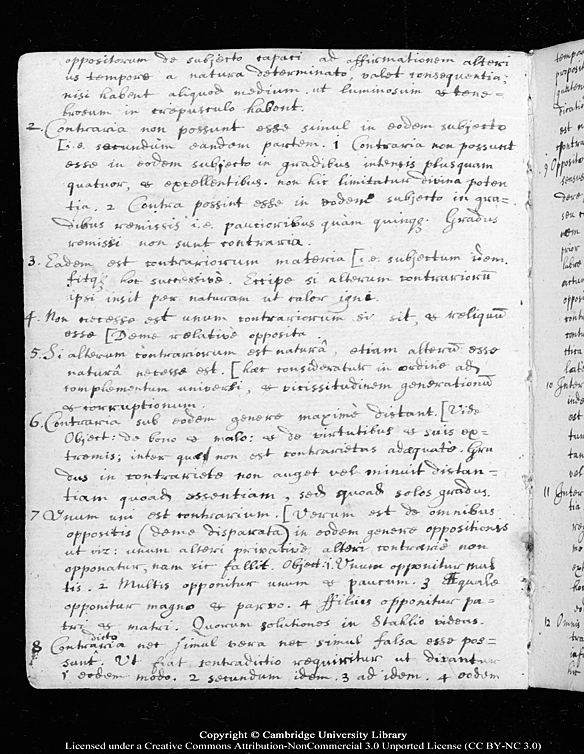 oppositorum de subjecto capaci ad affirmationem alteri
us tempore a natura determinato, valet consequentia;
nisi habent aliquod medium, ut luminosum & tene-
brosum in crepusculo habent.
2. Contraria non possunt esse simul in eodem subjecto
[i.e. secundum eandem partem. 1 Contraria non possunt
esse in eodem subjecto in gradibus intensis plusquam
quatuor, & excellentibus. non hic limitatur divina poten
tia. 2 Contra possint esse in eodem subjecto in gra-
dibus remissis i.e. paucioribus quàm quinqꝫ. Gradus
remissi non sunt contraria.
3. Eadem est contrariorum materia [i.e. subjectum idem.
fitqꝫ hoc successivè. Excipe si alterum contrariorū
ipsi insit per naturam ut calor igni.
4. Non necesse est unum contrariorum si sit, & reliquū
esse [Deme relativè opposita
5. Si alterum contrariorum est naturâ, etiam alterū esse
naturâ necesse est. [hoc consideratur in ordine ad
complementum universi, & vicissitudinem generationū
& corruptionum.
6. Contraria sub eodem genere maximè distant. [Vide
Object: de bono & malo: & de virtutibus & suis ex-
tremis; inter quæ non est contrarietas adæquatè. Gra
dus in contrariete non auget vel minuit distan-
tiam quoad essentiam, sed quoad solos gradus.
7 Unum uni est contrarium. [Verum est de omnibus
oppositis (deme disparata) in eodem genere oppositionis
ut viz: unum alteri privativè, alteri contrariè non
opponatur, nam sic fallit. Object. 1. Unum opponitur mul
tis. 2 Multis opponitur unum & paucum. 3 Æquale
opponitur magno & parvo. 4 ffilius opponitur pa-
tri & matri. Quorum solutiones in Stahlio videas.
dicto
8 Contraria nec simul vera nec simul falsa esse pos-
sunt. Ut fiat contradictio requiritur ut dicantur
1 eodem modo. 2 secundum idem. 3 ad idem. 4 eodem
9
10
11
12
Copyright © Cambridge University Library
Licensed under a Creative Commons Attribution-NonCommercial 3.0 Unported License (CC BY-NC 3.0)